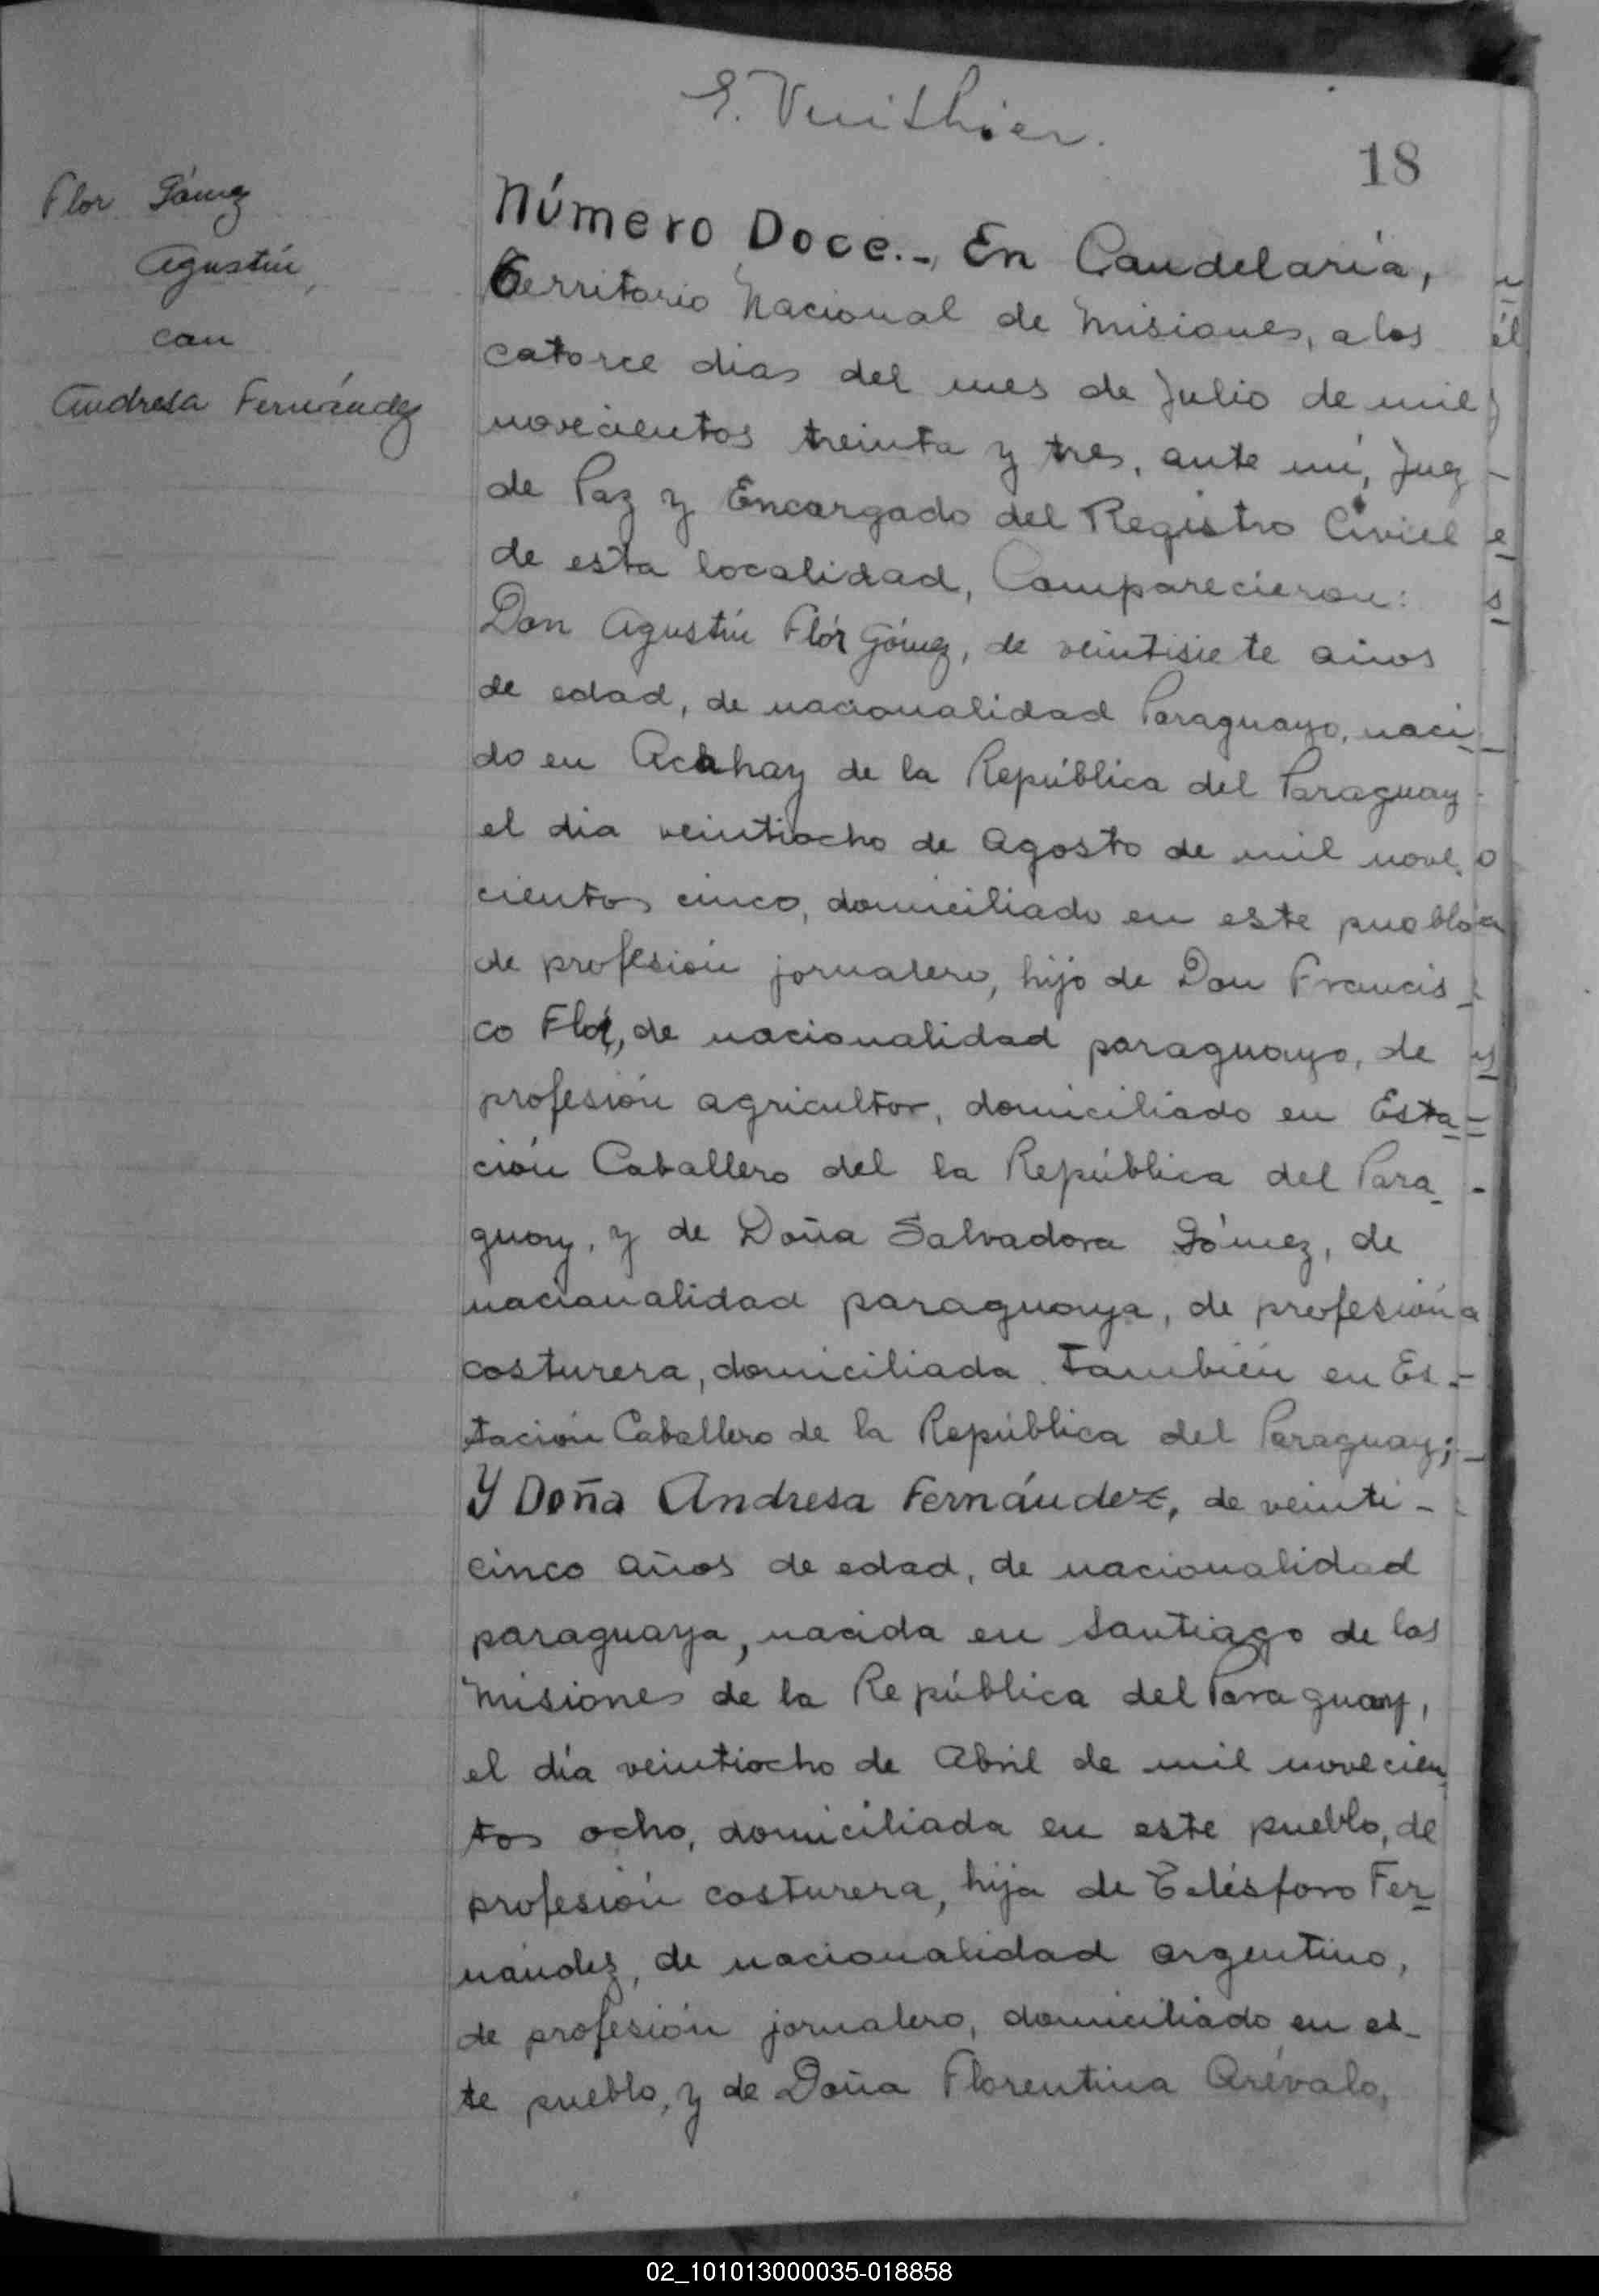 E. Vuithier.
18
Flor Gómez
Agustín,
con
Andresa Fernández
Número Doce.- En Candelaria,
Territorio Nacional de Misiones, a los
catorce dias del mes de Julio de mil
novecientos treinta y tres, ante mí, Juez
de Paz y Encargado del Registro Civil
de esta localidad, Comparecieron:
Don Agustín Flór Gómez, de veintisiete años
de edad, de nacionalidad Paraguayo, naci-
do en Acahay de la República del Paraguay
el dia veintiocho de Agosto de mil nove-
cientos cinco, domiciliado en este pueblo
de profesión jornalero, hijo de Don Francis-
co Flór, de nacionalidad paraguayo, de
profesión agricultor, domiciliado en Esta-
ción Caballero del la República del Para-
guay, y de Doña Salvadora Gómez, de
nacionalidad paraguaya, de profesión
costurera, domiciliada también en Es-
tación Caballero de la República del Paraguay;
Y Doña Andresa Fernández, de veinti-
cinco años de edad, de nacionalidad
paraguaya, nacida en Santiago de las
Misiones de la República del Paraguay,
el día veintiocho de Abril de mil novecien-
tos ocho, domiciliada en este pueblo, de
profesión costurera, hija de Telésforo Fer-
nández, de nacionalidad argentino,
de profesión jornalero, domiciliado en es-
te pueblo, y de Doña Florentina Arévalo,
02_101013000035-018858